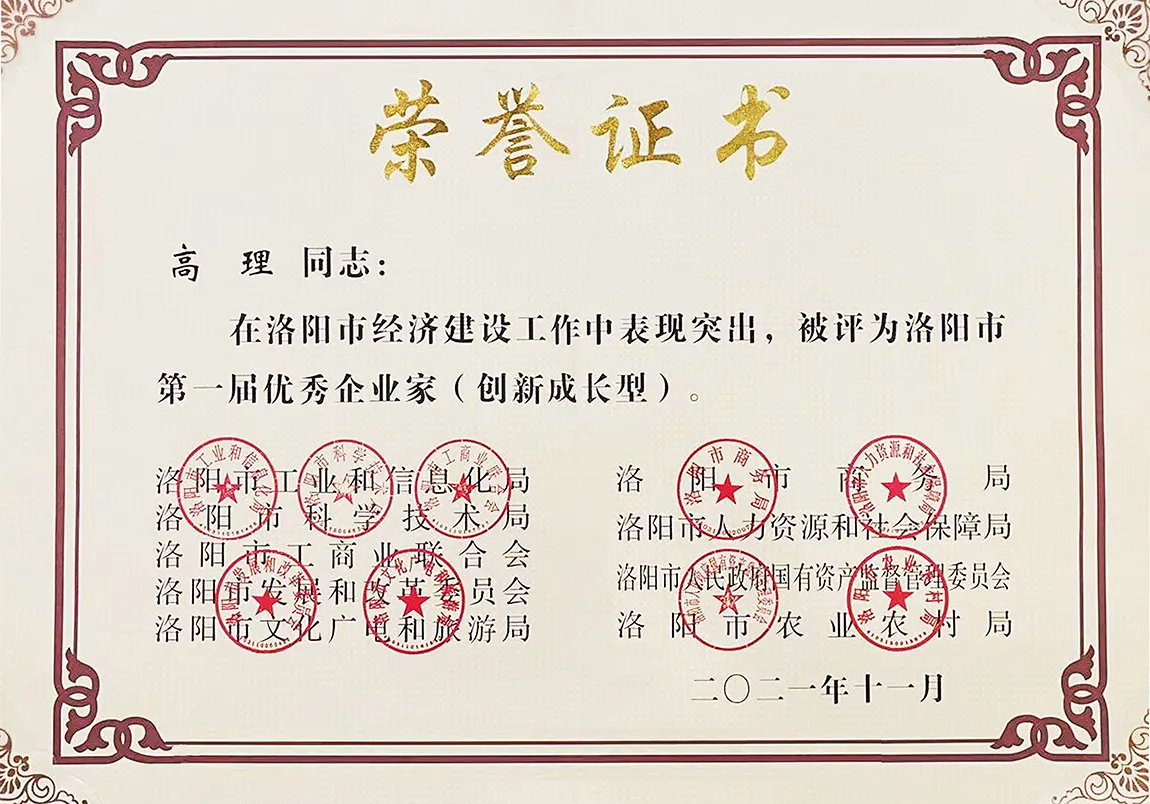 荣誉证书
高 理 同志：
在洛阳市经济建设工作中表现突出，被评为洛阳市
第一届优秀企业家（创新成长型）。
洛阳市工业和信息化局
洛阳市科学技术局
洛阳市工商业联合会
洛阳市发展和改革委员会
洛阳市文化广电和旅游局
洛阳市商务局
洛阳市人力资源和社会保障局
洛阳市人民政府国有资产监督管理委员会
洛阳市农业农村局
二〇二一年十一月